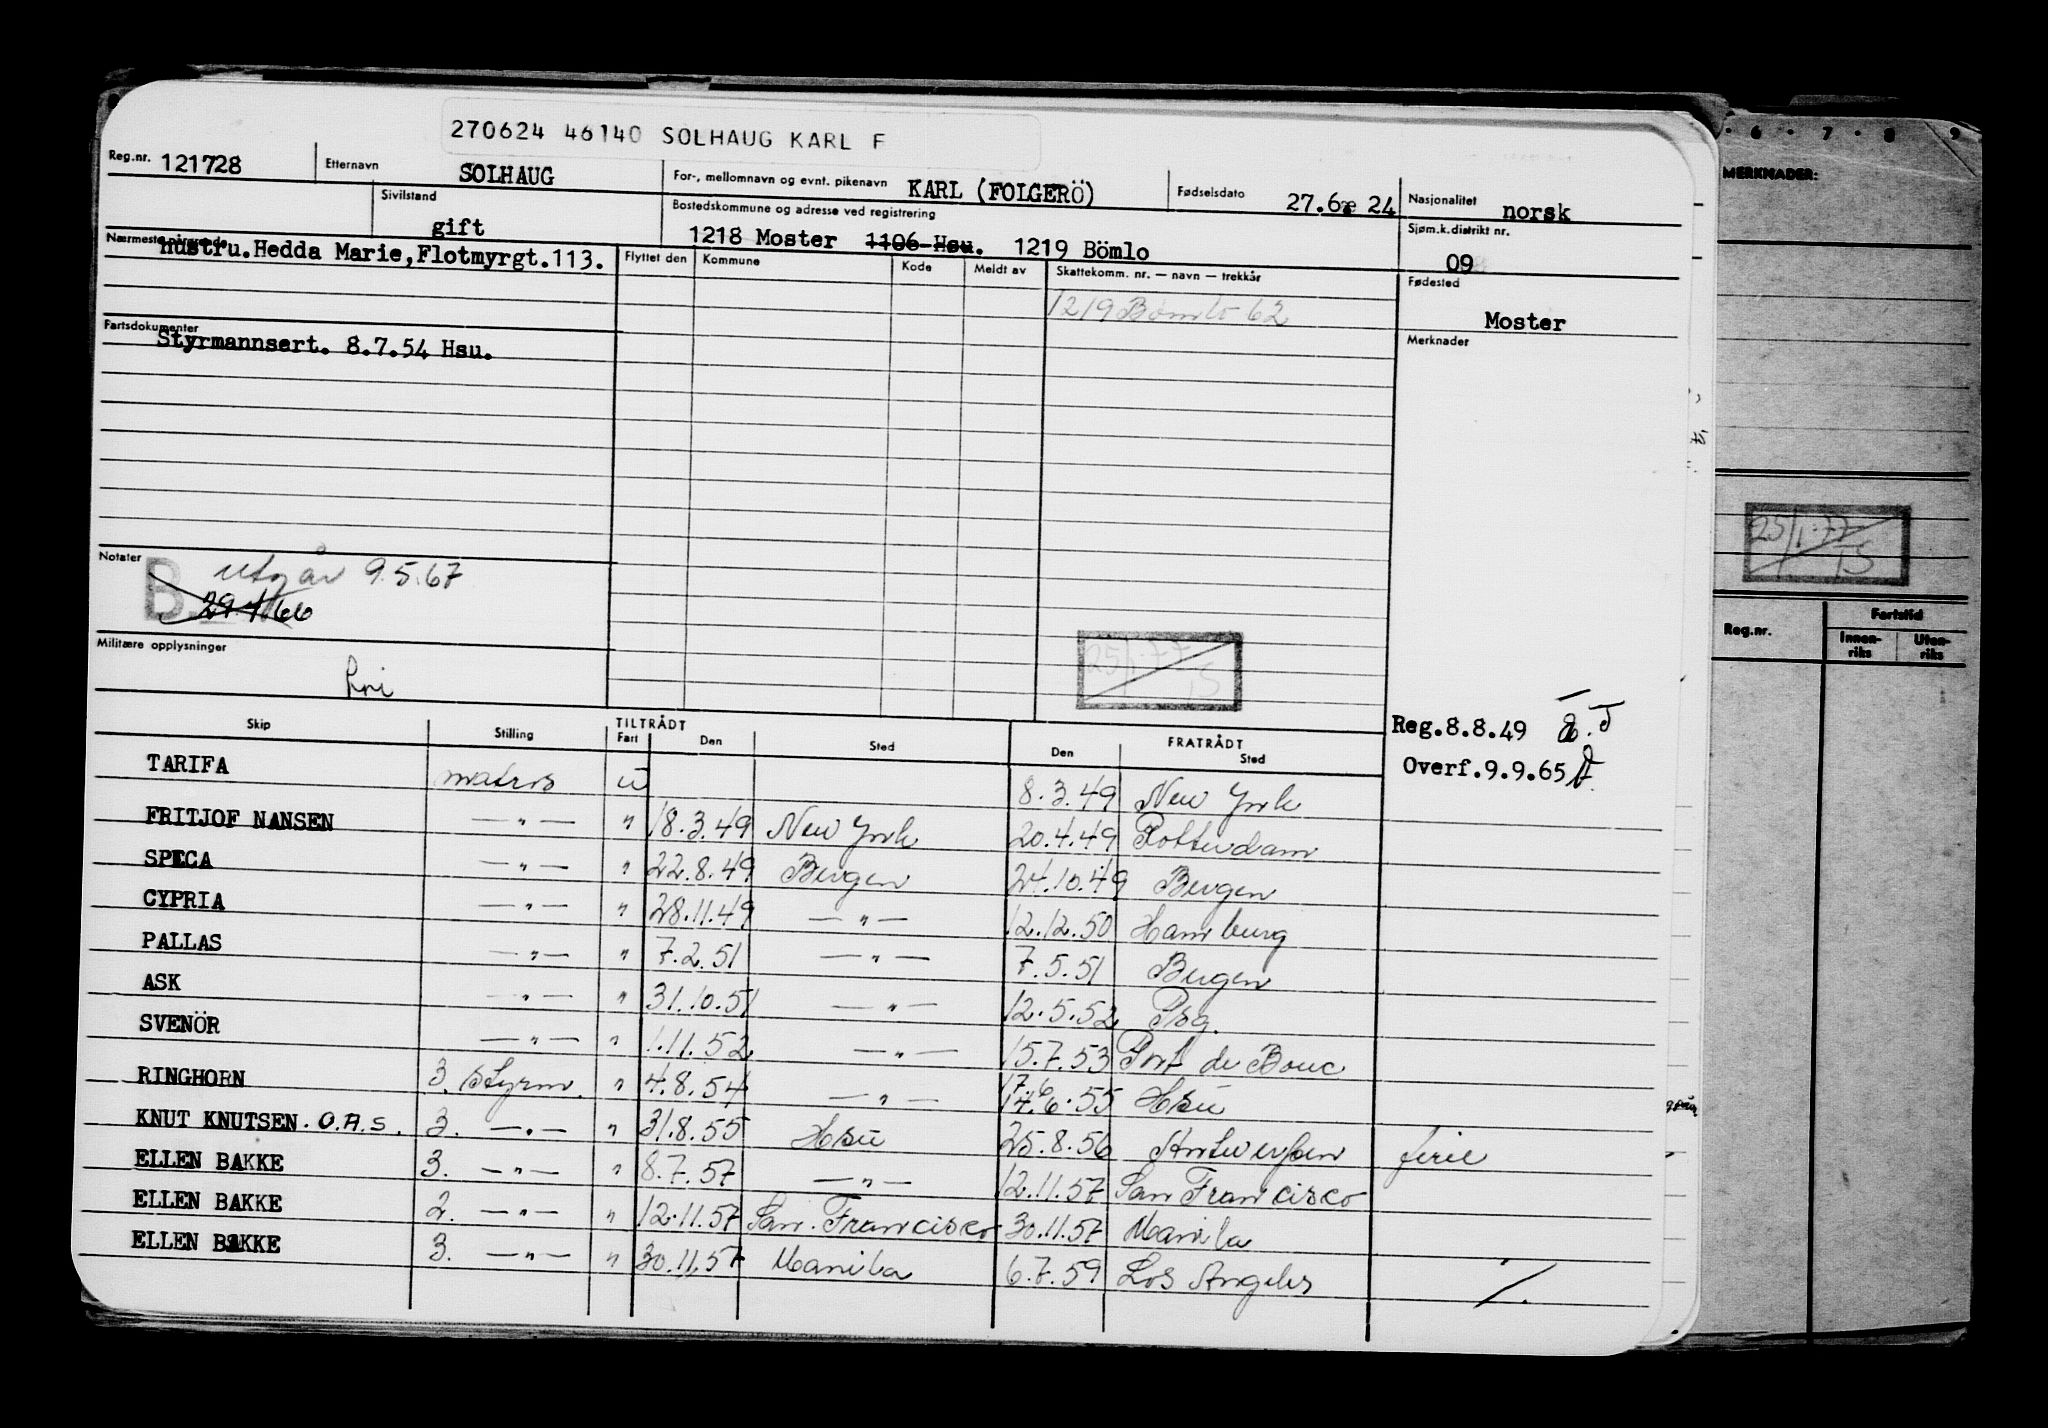 270624 46140 SOLHAUG KARL F
Reg.nr. 121728 Etternavn SOLHAUG For-, mellomnavn og evnt. pikenavn KARL (FOLGERÖ) Fødselsdato 27.6. 24 Nasjonalitet norsk
Sivilstand gift Bostedskommune og adresse ved registrering 1218 Moster 1106 Hsu. 1219 Bömlo Sjøm.k.distrikt nr. 09
Nærmeste pårørende hustru.Hedda Marie,Flotmyrgt.113. Flyttet den Kommune Kode Meldt av Skattekomm. nr. — navn — trekkår Fødested
1219 Bömlo 62 Moster
Fartsdokumenter Merknader
Styrmannsert. 8.7.54 Hsu.
Notater
B. utgår 9.5.67
Militære opplysninger
fri
25/1.77
Reg.8.8.49
Overf.9.9.65
Skip Stilling TILTRÅDT Fart Den Sted FRATRÅDT Den Sted
TARIFA matros u 8.3.49 New York
FRITJOF NANSEN —"— " 18.3.49 New York 20.4.49 Rotterdam
SPECA —"— " 22.8.49 Bergen 24.10.49 Bergen
CYPRIA —"— " 28.11.49 —"— 12.12.50 Hamburg
PALLAS —"— " 7.2.51 —"— 7.5.51 Bergen
ASK —"— " 31.10.51 —"— 12.5.52 Psg.
SVENÖR —"— " 1.11.52 —"— 15.7.53 Port de Bouc
RINGHORN 3. Styrm. " 4.8.54 —"— 17.6 14.6.55 Hsu
KNUT KNUTSEN. O.A.S. 3. —"— " 31.8.55 Hsu 25.8.56 Antwerpen ferie
ELLEN BAKKE 3. —"— " 8.7.57 —"— 12.11.57 San Francisco
ELLEN BAKKE 2. —"— " 12.11.57 San. Francisco 30.11.57 Manila
ELLEN BAKKE 3. —"— " 30.11.57 Manila 6.7.59 Los Angeles
·/.
6 · 7 · 8 9
MERKNADER:
25/1.77
15
Reg.nr. Fartstid
Innen-riks Uten-riks